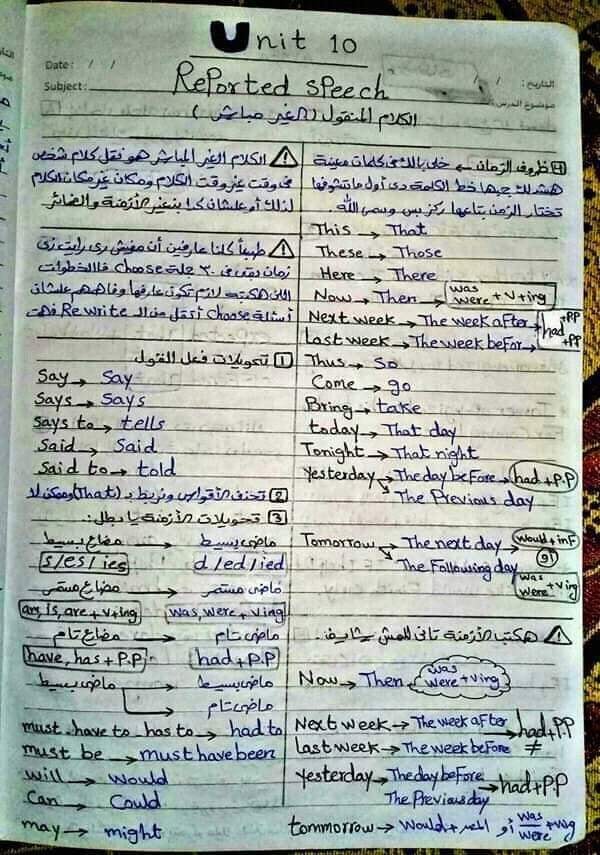 Unit 10
Date : / /
التاريخ : / /
Subject :
موضوع الدرس
Reported speech
الكلام المنقول (الغير مباشر)
⚠ الكلام الغير المباشر هو نقل كلام شخص
فى وقت غير وقت الكلام ومكان غير مكان الكلام
لذلك أو علشان كدا بنغير الأزمنة والضمائر
⚠ طبعاً كلنا عارفين أن مفيش رى رايت زى
زمان بقى فى ٣٠ جملة choose فالخطوات
اللى هكتبها لازم تكون عارفها وفاهمهم علشان
أسئلة choose أتقل من الـ Rewrite فهى
1 تحويلات فعل القول
Say → Say
Says → Says
Says to → tells
Said → Said
Said to → told
2 تحذف الأقواس ونربط بـ (That) وممكن لا
3 تحويلات الأزمنة يا بطل :
مضارع بسيط → ماضى بسيط
s / es / ies d / ed / ied
مضارع مستمر → ماضى مستمر
am, is, are + v + ing was, were + v ing
مضارع تام → ماضى تام
have, has + P.P had + P.P
ماضى بسيط → ماضى بسيط
ماضى تام
must. have to. has to → had to
must be → must have been
will → would
Can → Could
may → might
4 ظروف الزمان ← خلى بالك فى كلمات معينة
هشدلك جبها خط الكلمة دى أول ما تشوفها
تختار الزمن بتاعها ركز بس وسمى الله.
This → That
These → Those
Here → There
Now → Then → was were + v + ing
Next week → The week after → had + PP
Last week → The week befor → had + PP
Thus → So
Come → go
Bring → take
today → That day
Tonight → That night
Yesterday → The day before → had + P.P
The Previous day
Tomorrow → The next day → would + inf
أو
The Following day was were + v ing
⚠ هكتب الأزمنة تانى للمش شايف..
Now → Then was were + v ing
Next week → The week after → had + P.P
Last week → The week before ≠
Yesterday → The day before → had + P.P
The Previous day
tommorrow → would + المصدر أو was were + v ing